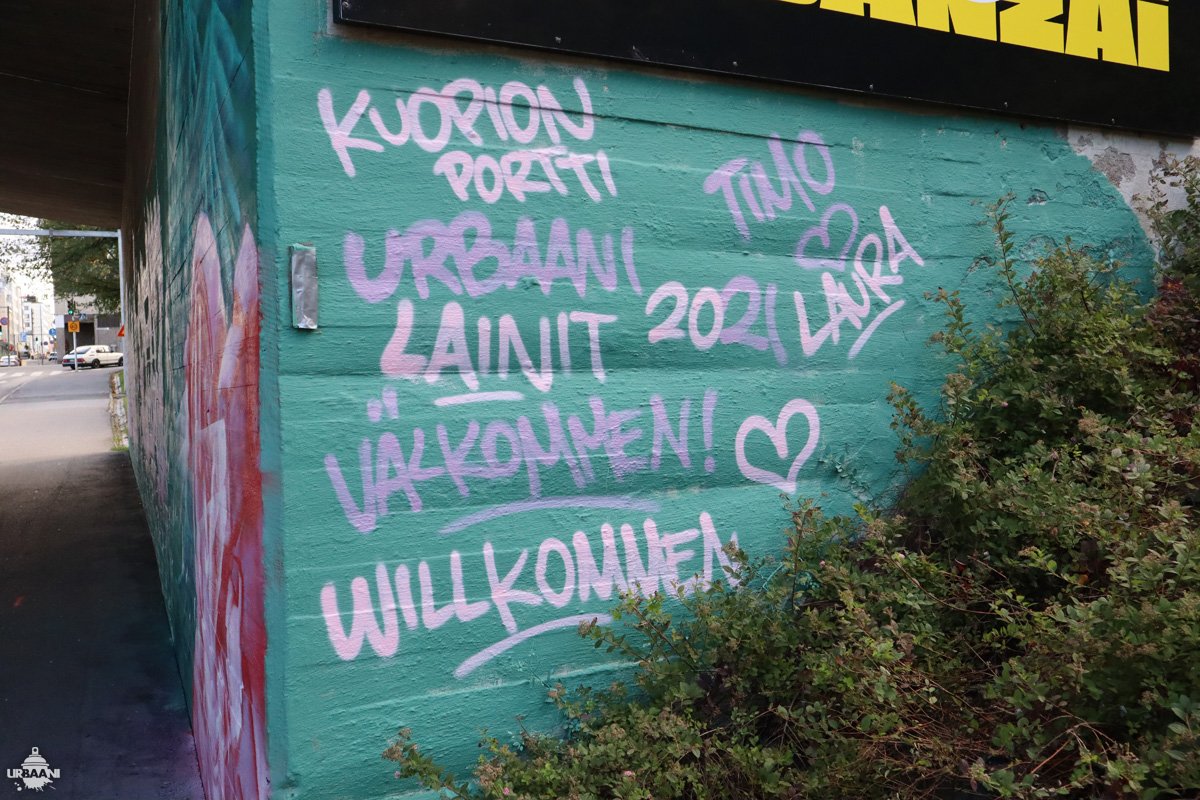 ANZAI
KUOPION
PORTTI
URBAANI
LAINIT 2021
VÄLKOMMEN!
WILLKOMMEN
TIMO
♡
LAURA
♡
URBAANI